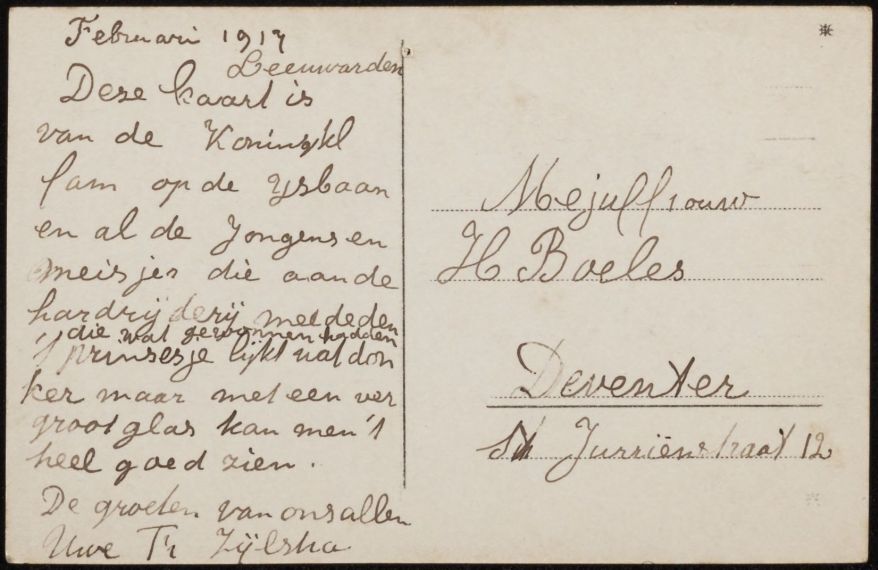 Februari 1917
Leeuwarden
Deze kaart is
van de Koninkl
fam op de ysbaan
en al de Jongens en
meisjes die aan de
hardrijderij meededen
die wat gewonnen hadden
't prinsesje lijkt wat don
ker maar met een ver
groot glas kan men 't
heel goed zien.
De groeten van ons allen
Uwe Tr Zijlstra
Mejuffrouw
H Boeles
Deventer
St Jurriënstraat 12